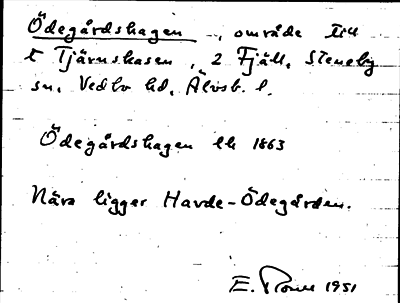 Ödegårdshagen, område till
t Tjärnshasen, 2 Fjäll, Steneby
sn, Vedbo hd, Älvsb. l.
Ödegårdshagen lk 1863
Nära ligger Havde-Ödegården.
E. 1951